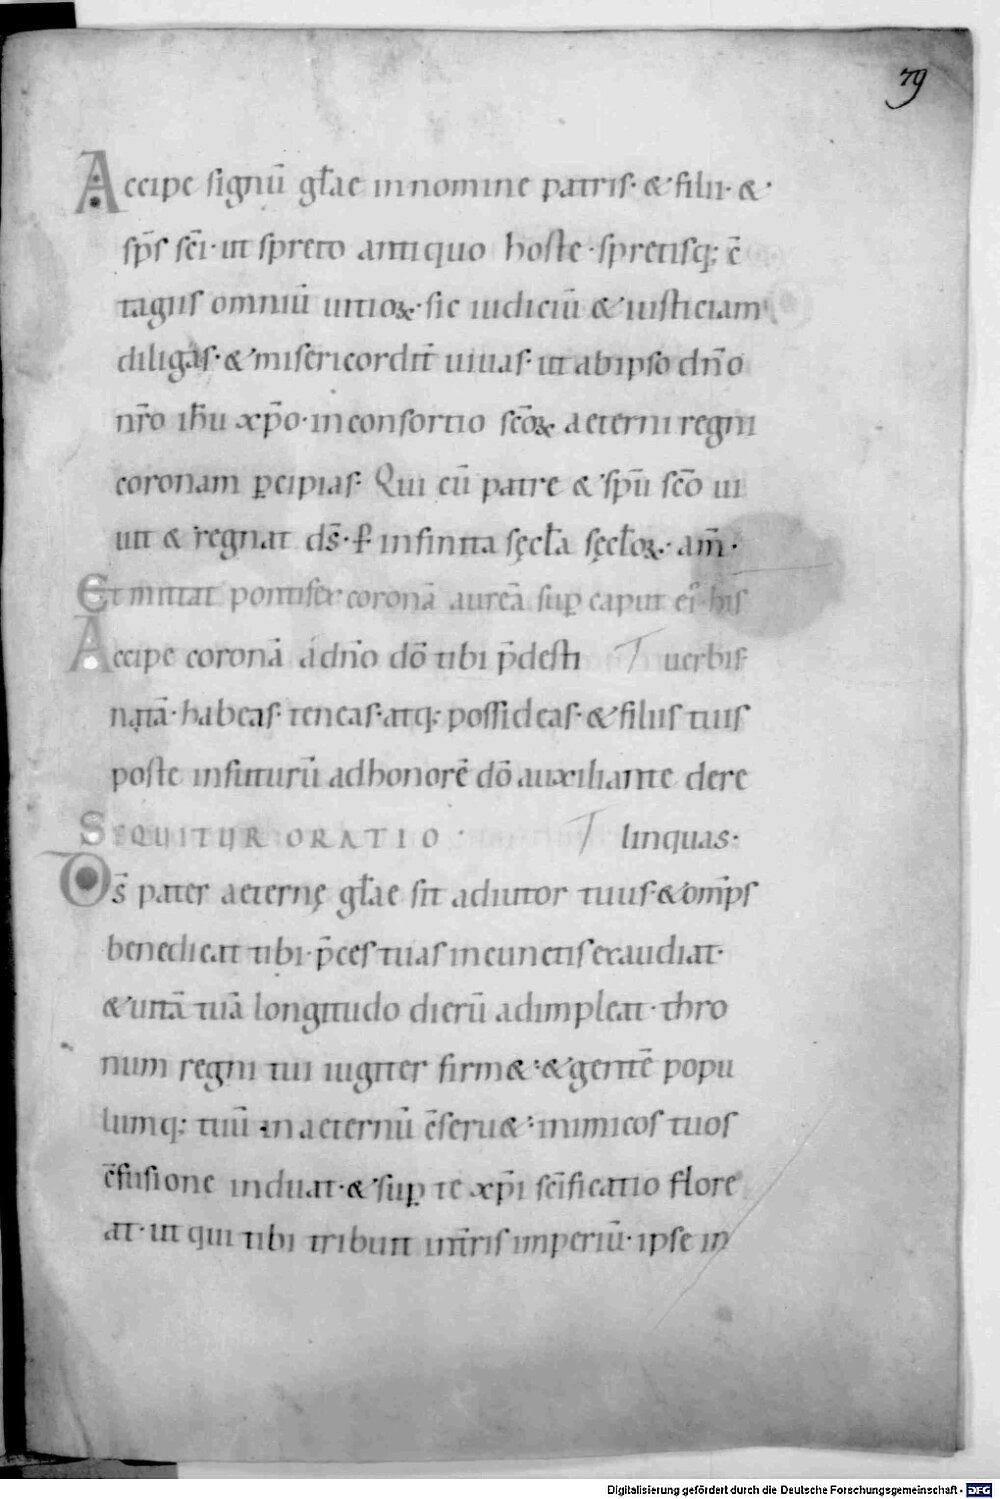 79
Accipe signū gl̄ae in nomine patris· & filii· &·
sp̄s sc̄i· ut spreto antiquo hoste· spretisq; c̄
tagiis omniū uitioꝝ· sic iudiciū & iusticiam
diligas· & misericordit̄ uiuas· ut ab ipso dn̄o
nr̄o ih̄u xp̄o· in consortio sc̄oꝝ aeterni regni
coronam ꝑcipias· Qui cū patre & sp̄u sc̄o ui
uit & regnat ds̄· ꝑ infinita sęcl̄a sęcl̄oꝝ· am̄·
Et mittat pontifex coronā aureā suꝑ caput ei᾽ his
Accipe coronā a dn̄o dō tibi p̄desti uerbis·
natā· habeas· teneas· atq; possideas· & filiis tuis
poste in futurū ad honorē dō auxiliante dere
SEQUITUR ORATIO· linquas·
Ds̄ pater aeternę gl̄ae sit adiutor tuus· & omp̄s
benedicat tibi· p̄ces tuas in cunctis exaudiat·
& uitā tuā longitudo dierū adimpleat· thro
num regni tui iugiter firm&· & gentē popu
lumq; tuū in aeternū c̄seru&· inimicos tuos
c̄fusione induat· & suꝑ te xp̄i sc̄ificatio flore
at· ut qui tibi tribuit in tr̄ris imperiū· ipse in
Digitalisierung gefördert durch die Deutsche Forschungsgemeinschaft - DFG